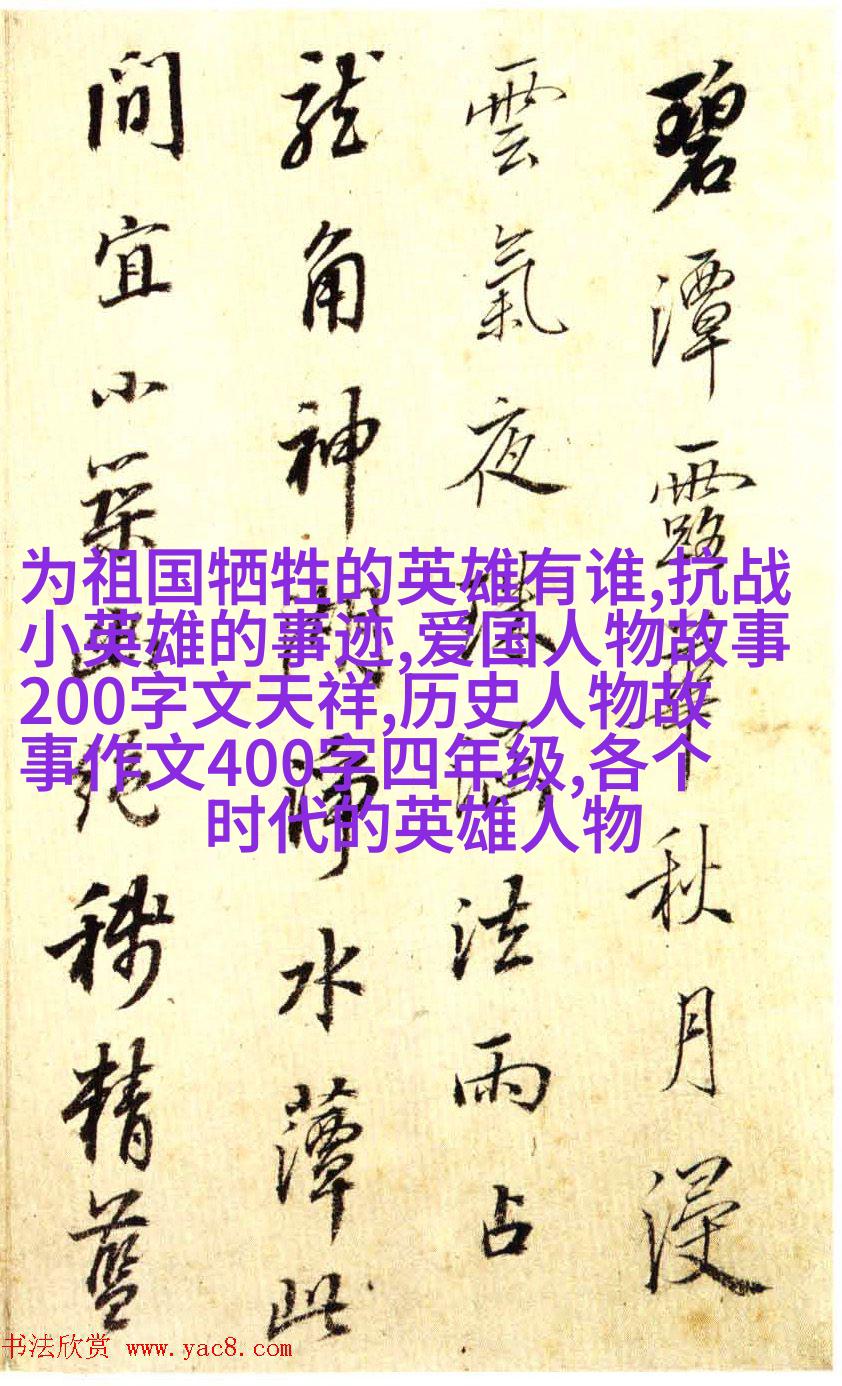 碧潭露華秋月浸
雲氣夜珠濕法雨占
龍角神湖淨水蕈此
間宜小築
精藍
为祖国牺牲的英雄有谁,抗战
小英雄的事迹,爱国人物故事
200字文天祥,历史人物故
事作文400字四年级,各个
时代的英雄人物
书法欣赏 www.yac8.com